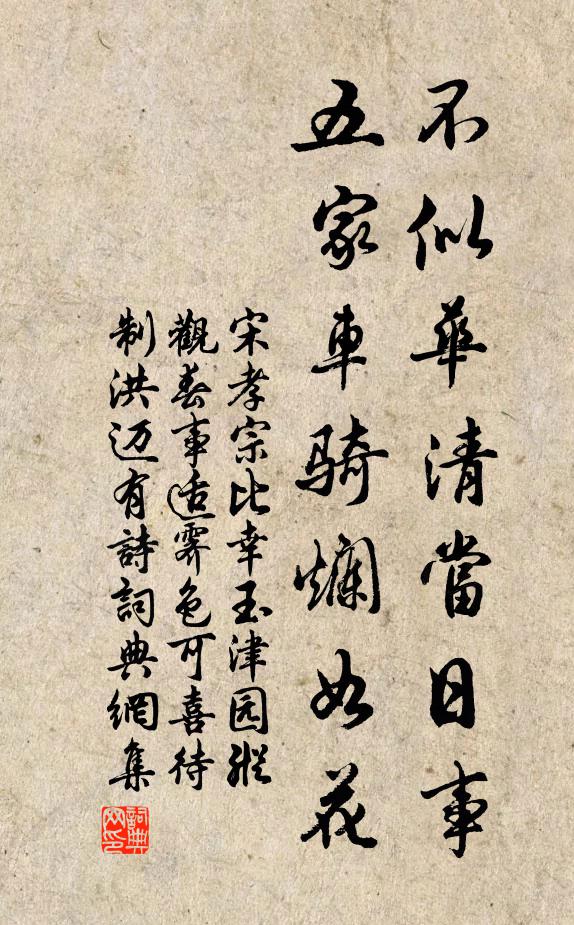 不似華清當日事
五家車騎爛如花
宋孝宗比幸玉津园縱
觀春事适霽色可喜待
制洪迈有詩詞典網集
詞典网印